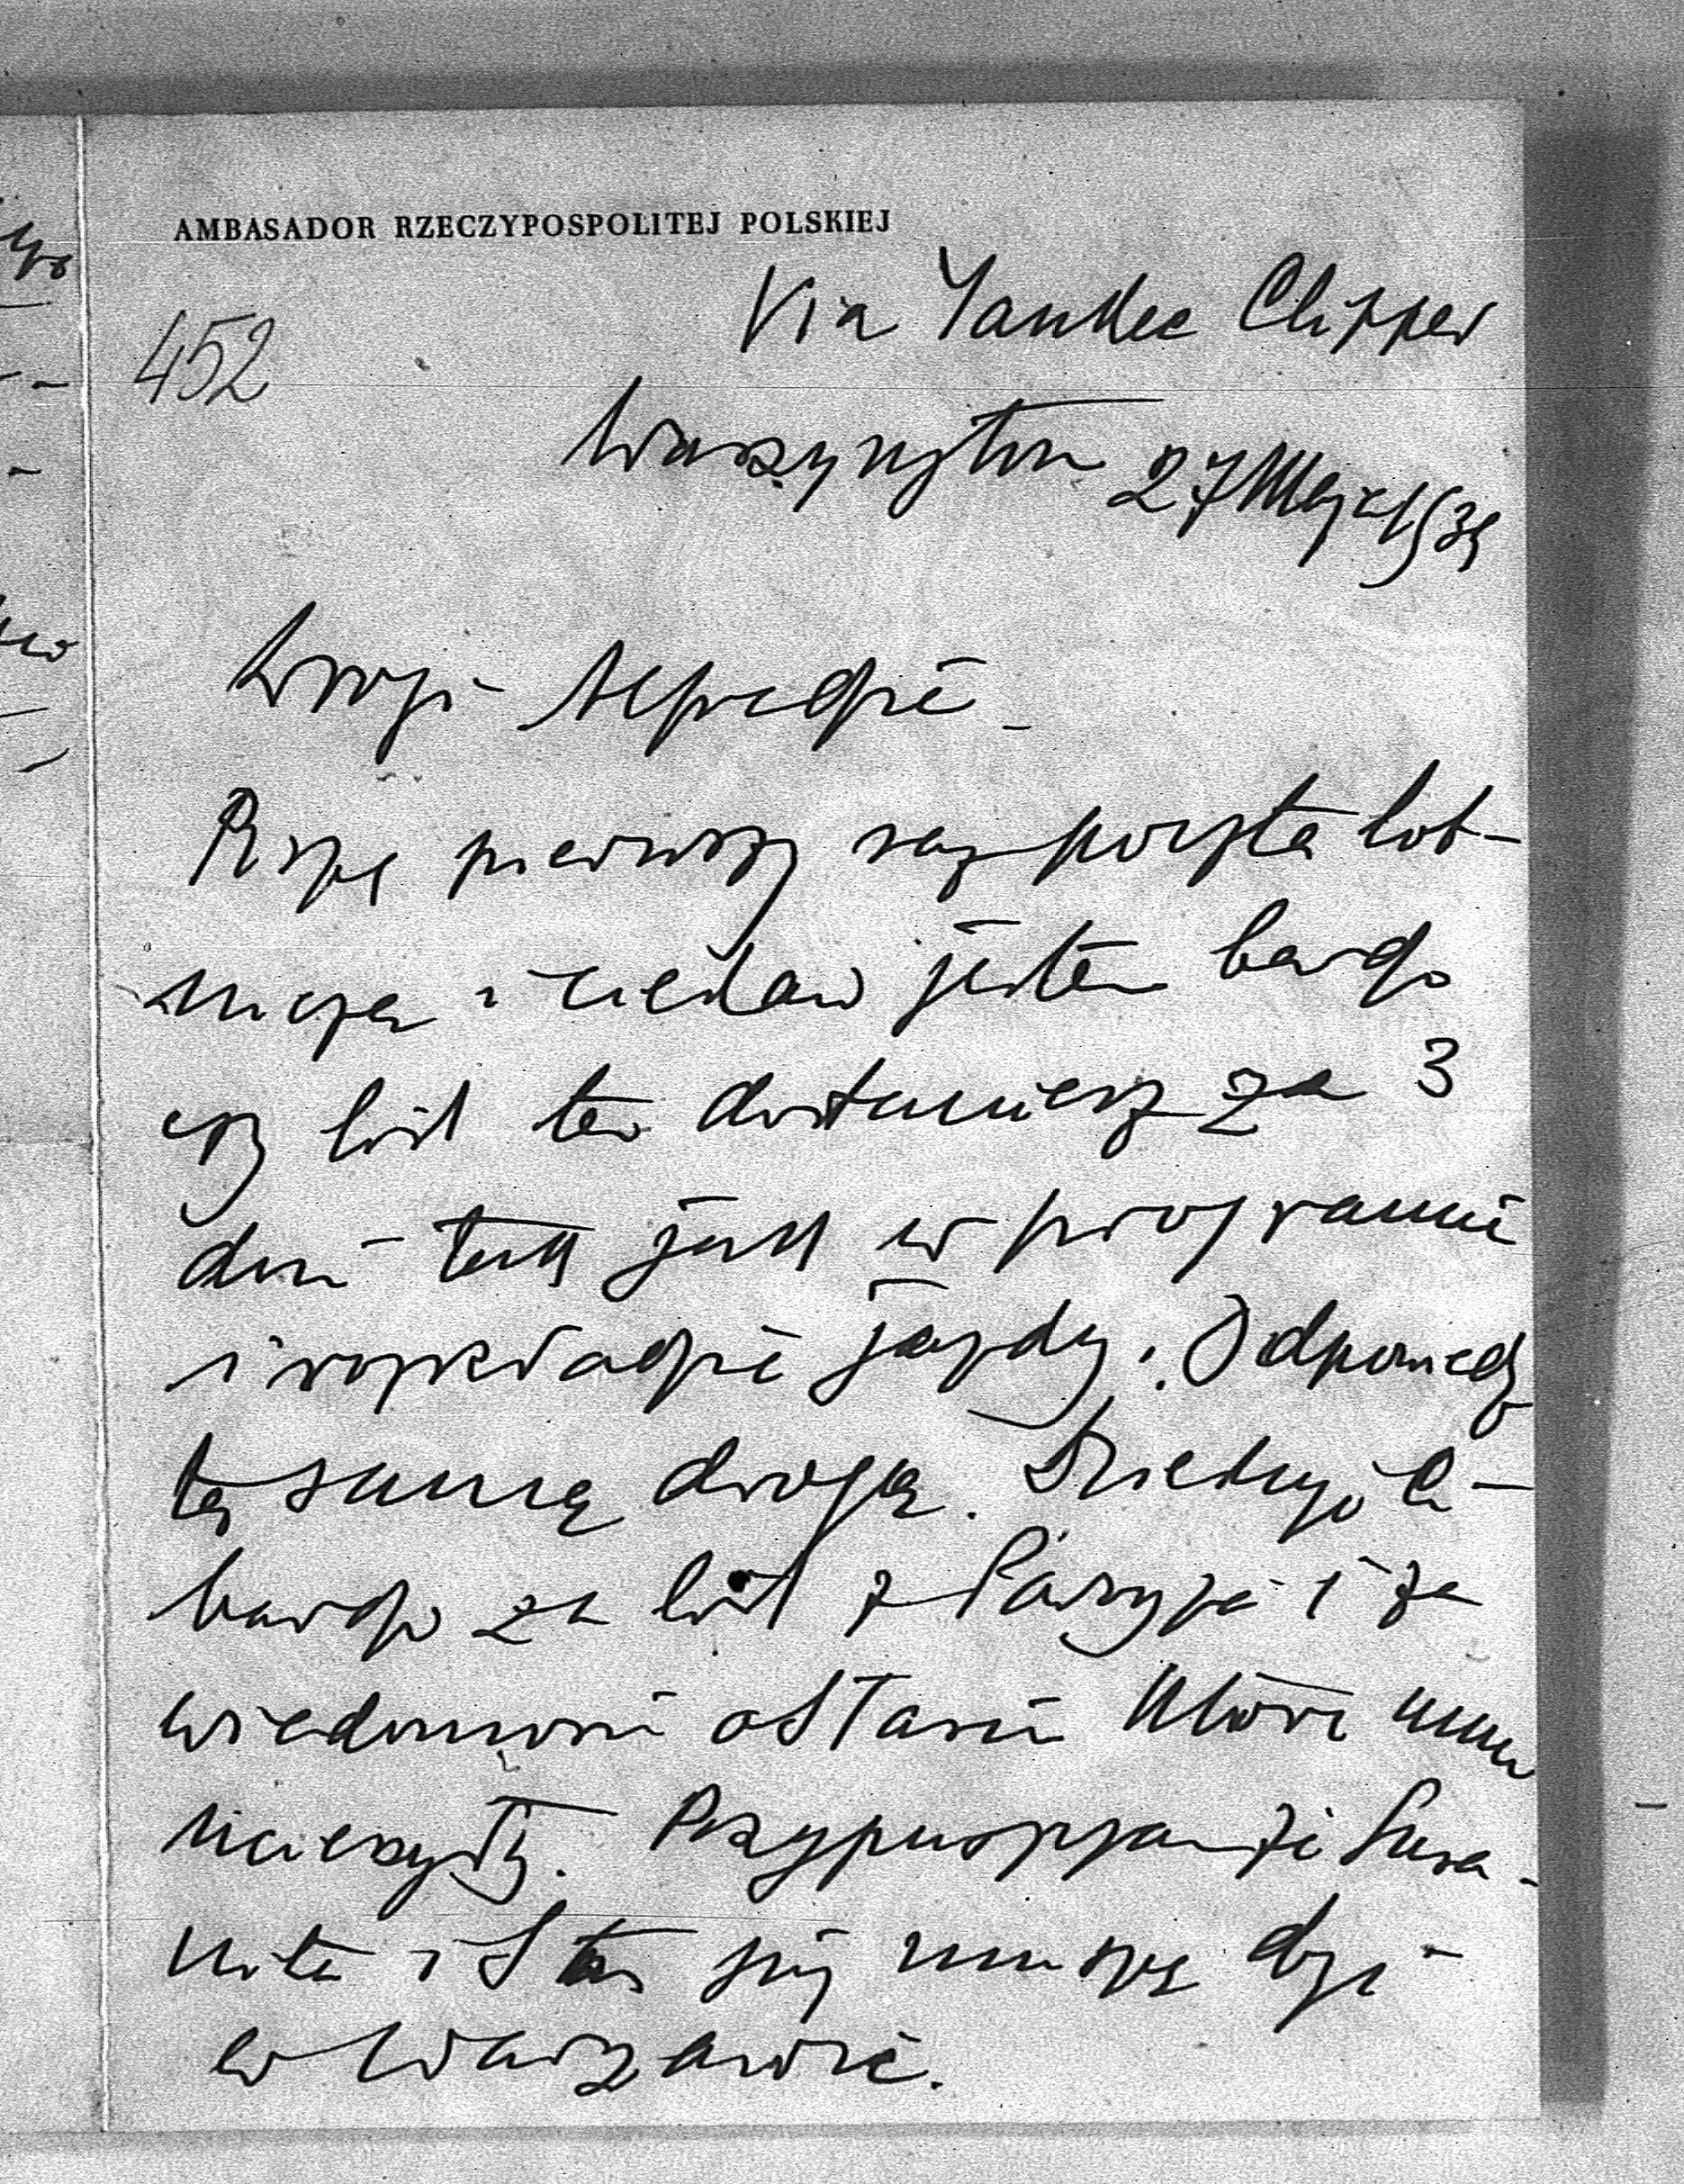 AMBASADOR RZECZYPOSPOLITEJ POLSKIEJ
452
Via Yankee Clipper
Waszyngton 27 Maja 1939
Drogi Alfredzie -
Piszę pierwszy raz pocztą lot-
niczą i ciekaw jestem bardzo
czy list ten dostaniesz za 3
dni tak jak w programie
i rozkładzie jazdy. Odpowiedz
tą samą drogą. Dziękuję Ci
bardzo za list z Paryża i za
wiadomości o Stasiu które mnie
ucieszyły. Przypuszczam że
i Staś są muszą być
w Warszawie.